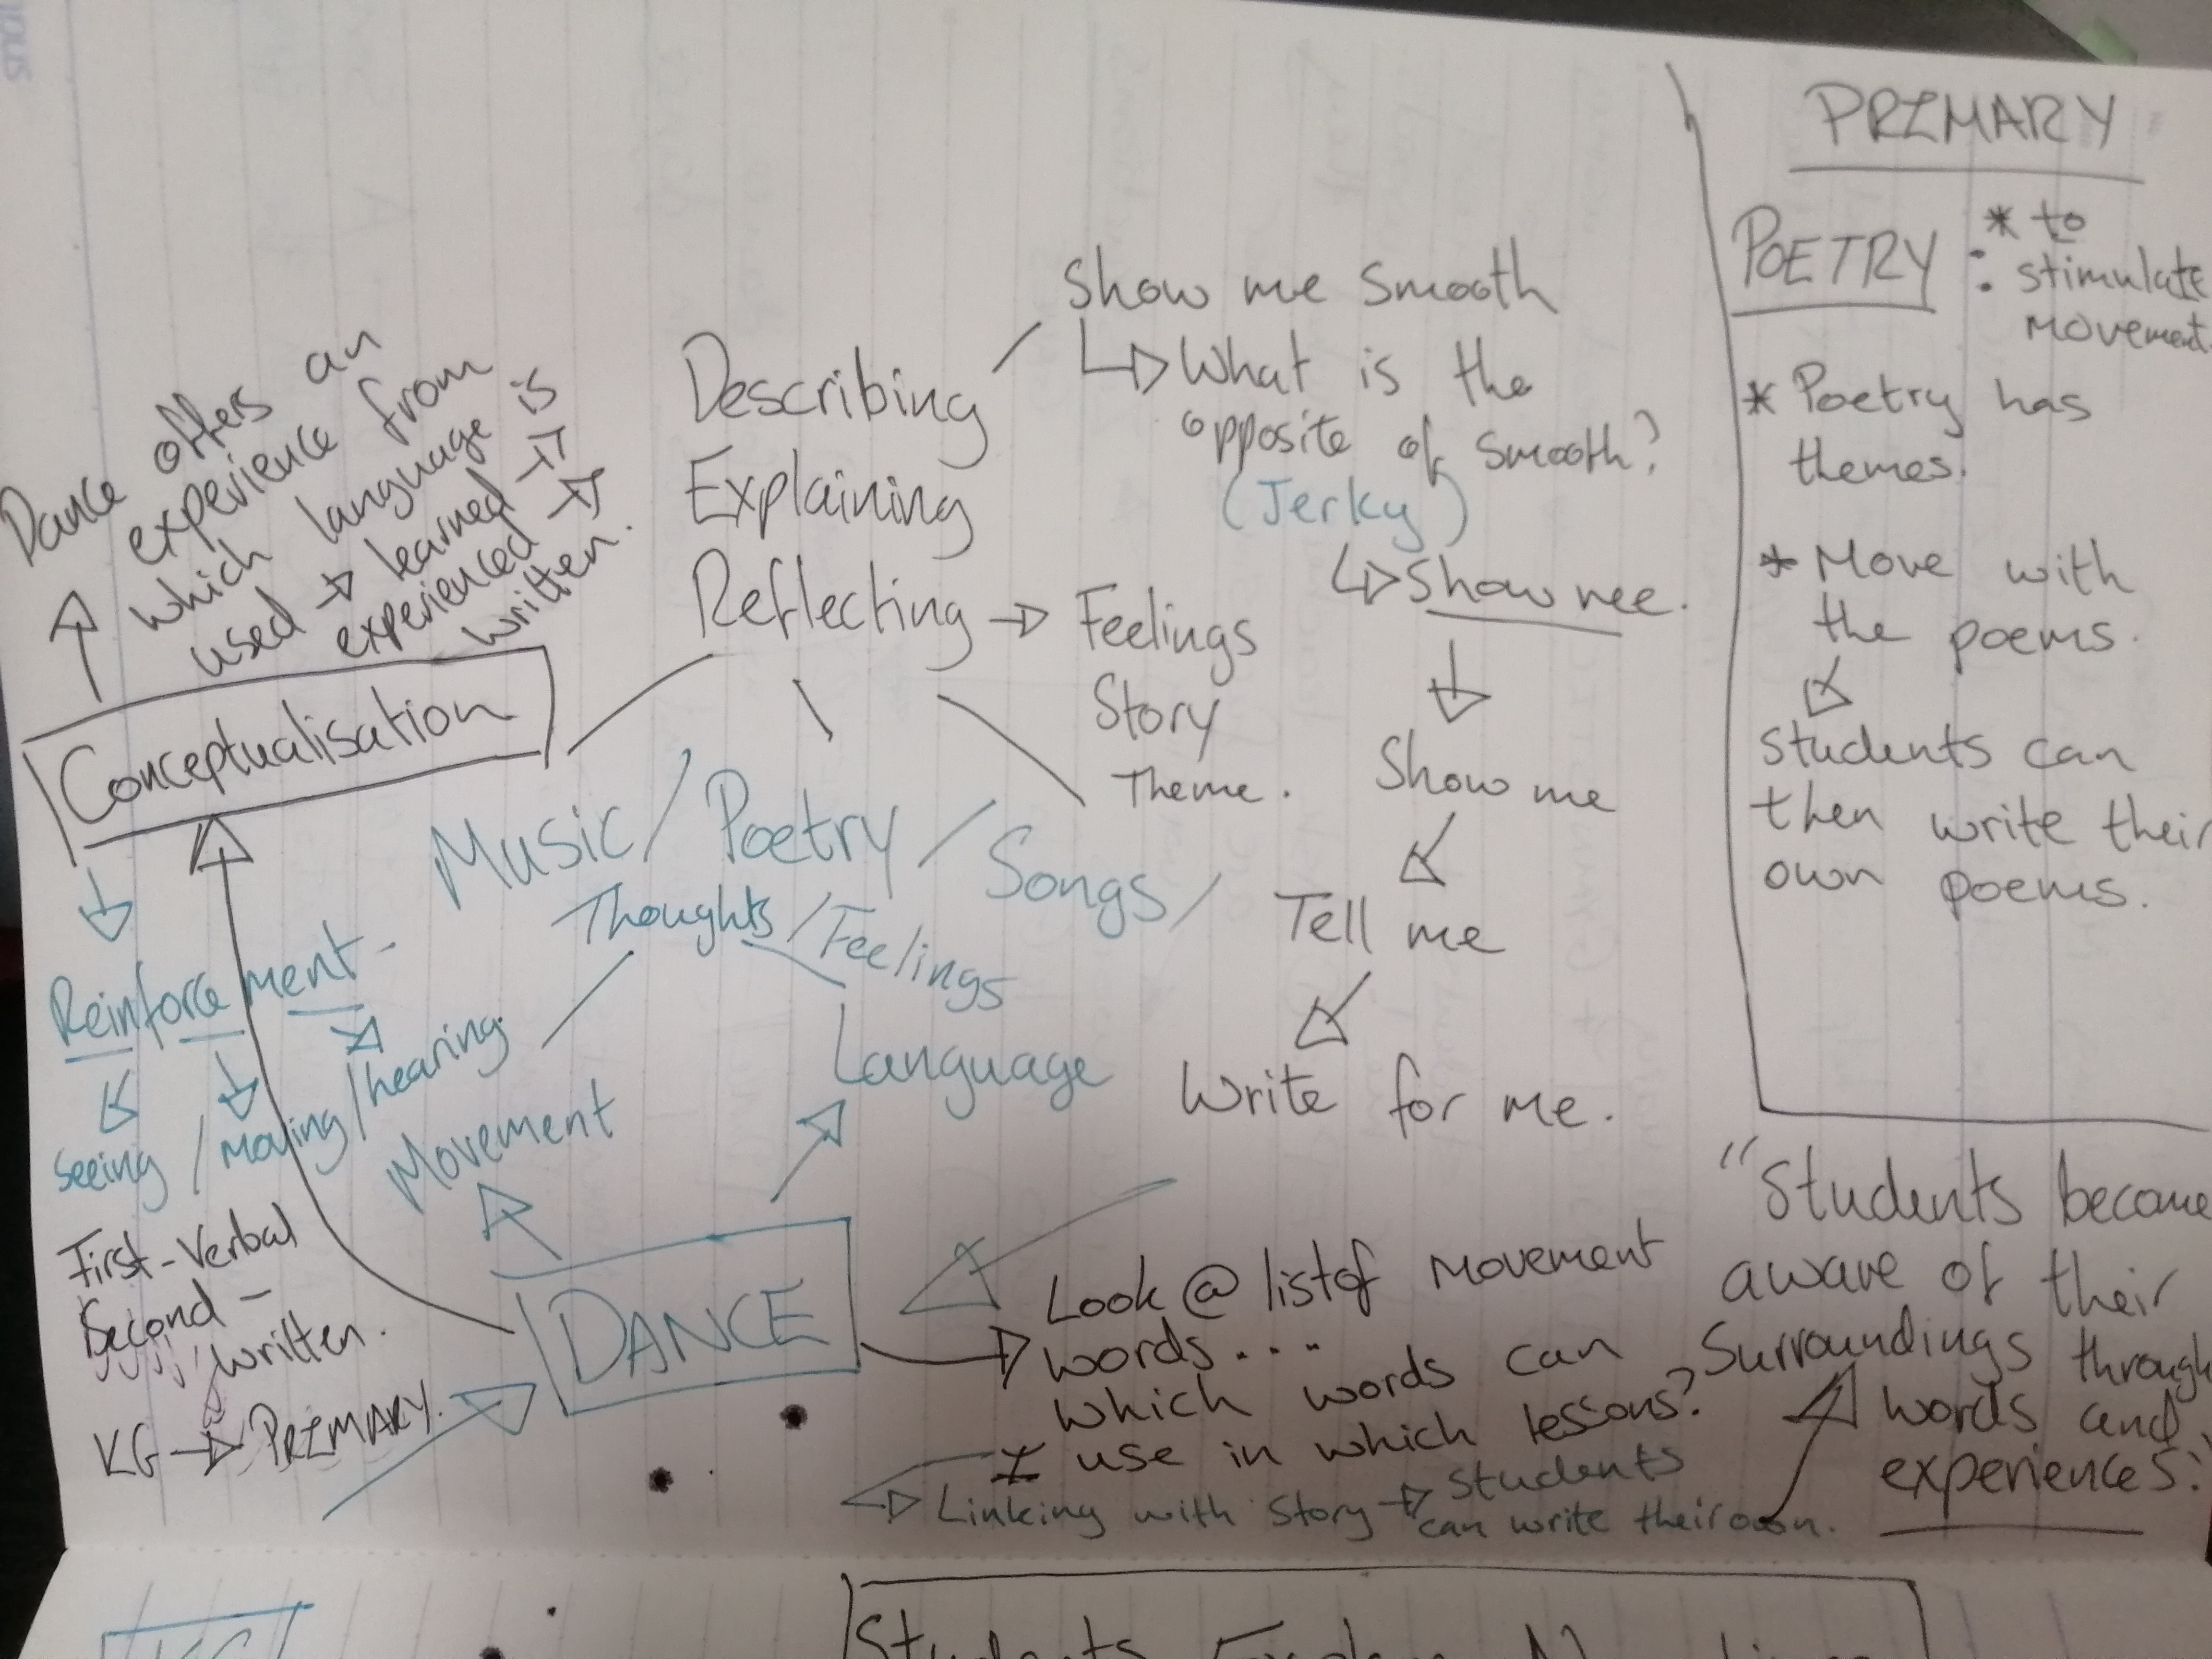 PRIMARY
POETRY : * to
stimulate
movement
* Poetry has
themes.
* Move with
the poems.
Students can
then write their
own poems.
Show me smooth
What is the
opposite of smooth?
(Jerky)
Show mee.
Show me
Tell me
Write for me.
Describing
Explaining
Reflecting → Feelings
Story
Theme.
Dance offers an
experience from
which language is
used → learned →
experienced →
written.
Conceptualisation
Music / Poetry / Songs /
Thoughts / Feelings
Language
Reinforcement -
Seeing / Moving / hearing.
Movement
First - Verbal
Second -
written.
KG → PRIMARY.
DANCE
Look @ list of movement
words...
which words can
I use in which lessons?
Linking with story → students
can write their own.
"Students become
aware of their
surroundings through
words and
experiences."
Students